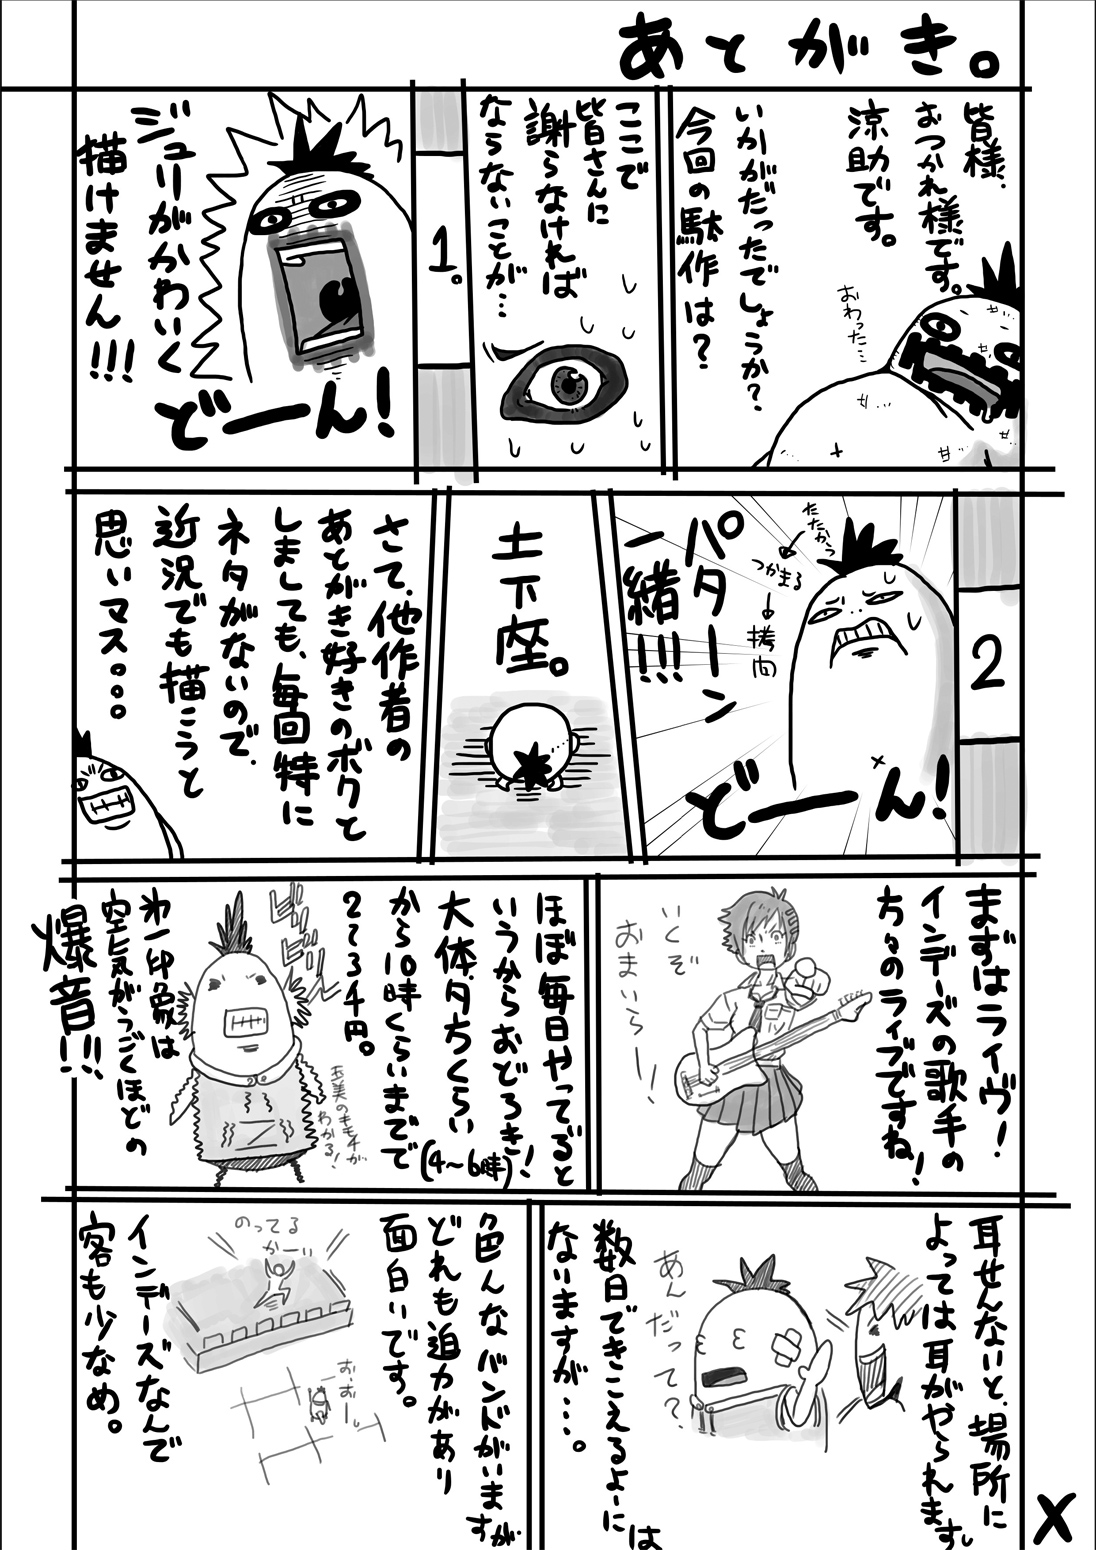 あとがき。
皆様、
おつかれ様です。
涼助です。
いかがだったでしょうか?
今回の駄作は?
おわった…
ここで
皆さんに
謝らなければ
ならないことが…
1。
ジュリがかわいく
描けません!!!
どーん!
2
たたかう
つかまる
拷問
パターン
一緒!!!
どーん!
土下座。
さて、他作者の
あとがき好きのボクと
しましても、毎回特に
ネタがないので、
近況でも描こうと
思いマス。。。
まずはライヴ!
インデーズの歌手の
ちっさいライブですね!
いくぞ
おまいらー!
ほぼ毎日やってると
いうからおどろき!
大体、夕方くらい
(4~6時)
から10時くらいまでで
2~3千円。
ビビビリ
玉美のキモチが
わかる!
第一印象は
空気がうごくほどの
爆音!!!
耳せんないと、場所に
よっては耳がやられます。
あんだって?
数日できこえるよーには
ないますが…。
色んなバンドがいますが
どれも迫力があり
面白いです。
のってる
かーい
お、おー。
インデーズなんで
客も少なめ。
X